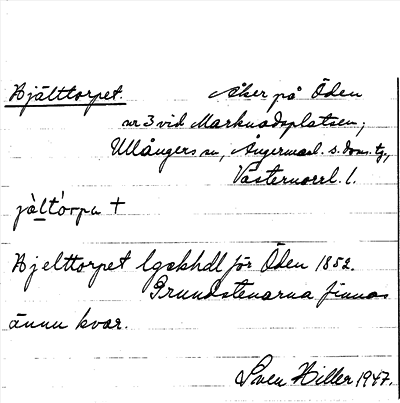 Hjälttorpet. Åker på Öden
nr 3 vid Marknadsplatsen,
Ullångers sn, Ångermanl. s. doms. tg,
Västernorrl. l.
jàltòrpa †
Hjelttorpet lgskhdl för Öden 1852.
Grundstenarna finnas
ännu kvar.
Sven Hiller 1947.